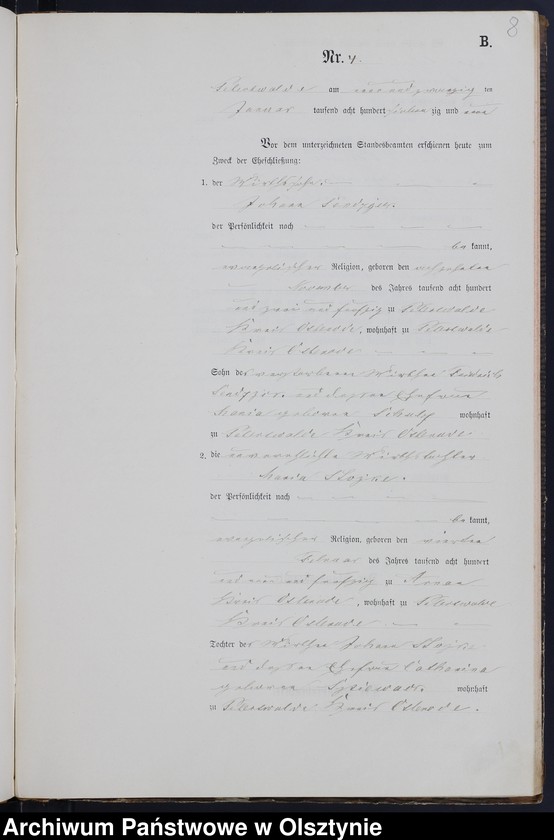 8
B.
Nr. 4.
Peterswalde am ein und zwanzig ten
Januar tausend acht hundert zig und
Vor dem unterzeichneten Standesbeamten erschienen heute zum
Zweck der Eheschließung:
1. der Wirthssohn
Johann
der Persönlichkeit nach
be kannt,
evangelischer Religion, geboren den
November des Jahres tausend acht hundert
und fünfzig zu Peterswalde
Kreis Osterode, wohnhaft zu Peterswalde
Kreis Osterode
Sohn des verstorbenen Wirthen
und dessen Ehefrau
Maria geborene Schulz wohnhaft
zu Peterswalde Kreis Osterode
2. die unverehelichte Wirthstochter
Maria Stojke.
der Persönlichkeit nach
be kannt,
evangelischer Religion, geboren den vierten
Februar des Jahres tausend acht hundert
und neun und fünfzig zu Arnau
Kreis Osterode, wohnhaft zu Peterswalde
Kreis Osterode
Tochter des Wirthen Johann Stojke
und dessen Ehefrau Catharina
geborene wohnhaft
zu Peterswalde Kreis Osterode.
Archiwum Państwowe w Olsztynie